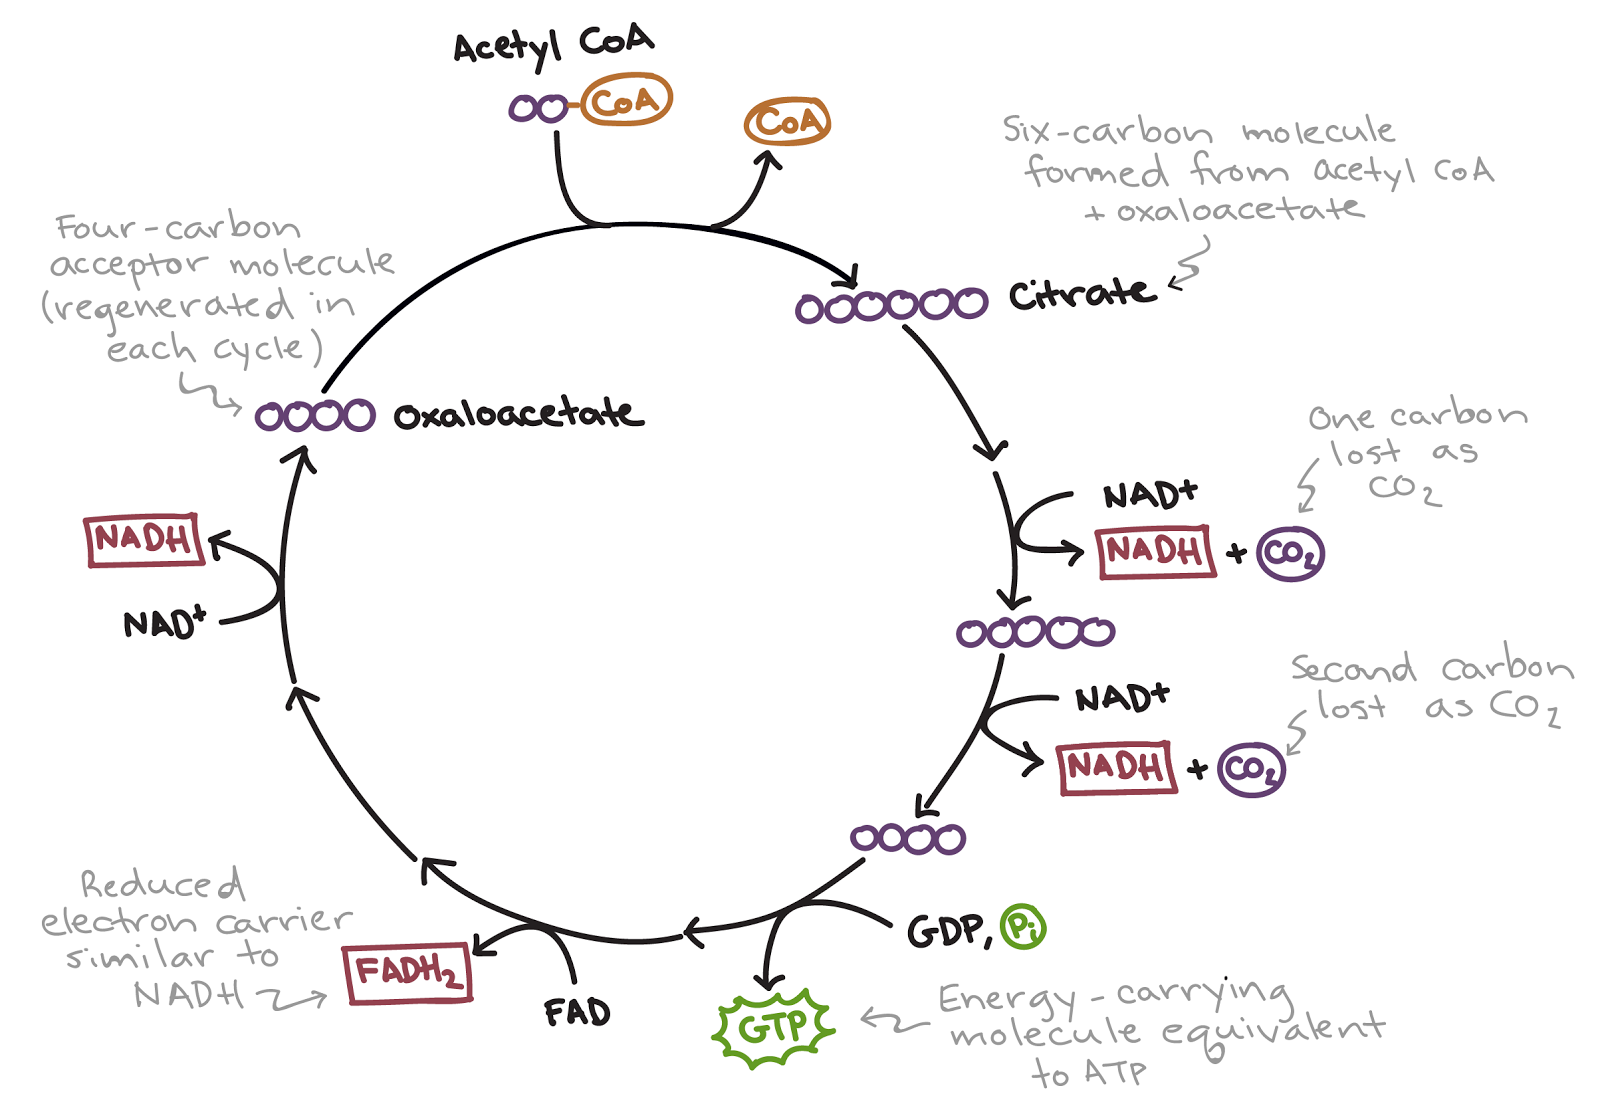 Acetyl CoA
CoA
CoA
Six-carbon molecule
formed from acetyl CoA
+ oxaloacetate
Four-carbon
acceptor molecule
(regenerated in
each cycle)
Citrate
oxaloacetate
One carbon
lost as
CO2
NAD+
NADH + CO2
NADH
NAD+
Second carbon
lost as CO2
NAD+
NADH + CO2
Reduced
electron carrier
similar to
NADH
FADH2
FAD
GDP, Pi
GTP
Energy-carrying
molecule equivalent
to ATP